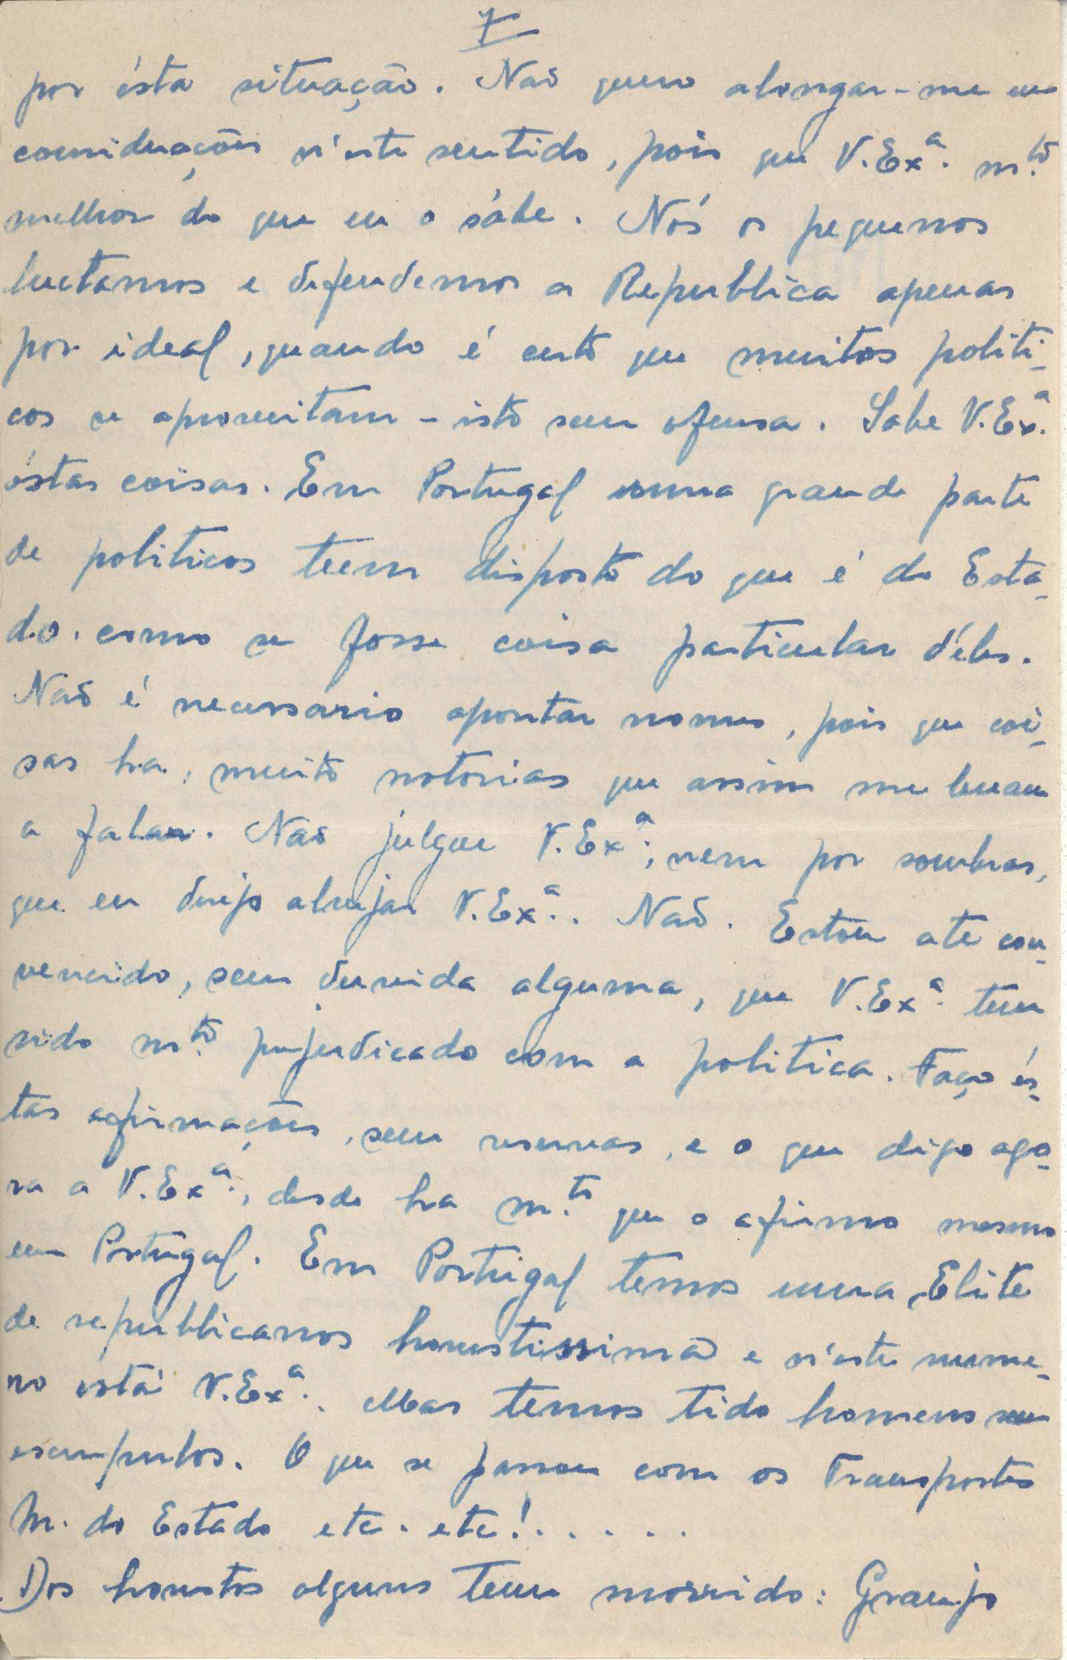 7
por ésta situação. Naõ quero alongar-me em
considerações n'este sentido, pois que V.Exª. m.tõ
melhor do que eu o sábe. Nós os pequenos
luctamos e defendemos a Republica apenas
por ideal, quando é certo que muitos politi-
cos se aproveitam - isto sem ofensa. Sabe V.Exª.
éstas coisas. Em Portugal uma grande parte
de politicos teem disposto do que é do Esta-
do. como se fosse coisa particular d'éles.
Naõ é necessario apontar nomes, pois que coi-
sas ha, muito notorias que assim me levam
a falar. Naõ julgue V.Exª., nem por sombras,
que eu desejo alvejar V.Exª.. Naõ. Estou até con-
vencido, sem duvida alguma, que V.Exª. tem
sido m.tõ prejudicado com a politica. Faço és-
tas afirmações, sem reservas, e o que digo ago-
ra a V.Exª., desde ha m.to que o afirmo mesmo
em Portugal. Em Portugal temos uma Elite
de republicanos honestissima e n'este nume-
ro está V.Exª.. Mas temos tido homens sem
escrupulos. O que se passou com os Transportes
M. do Estado etc. etc!. . . . . .
Dos honestos alguns teem morrido: Granjo